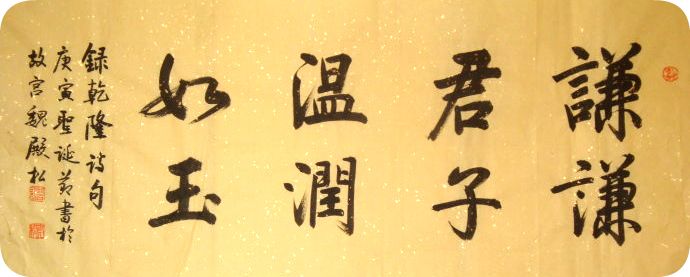 謙謙
君子
温潤
如玉
録乾隆詩句
庚寅聖誕節書於
故宫魏殿松